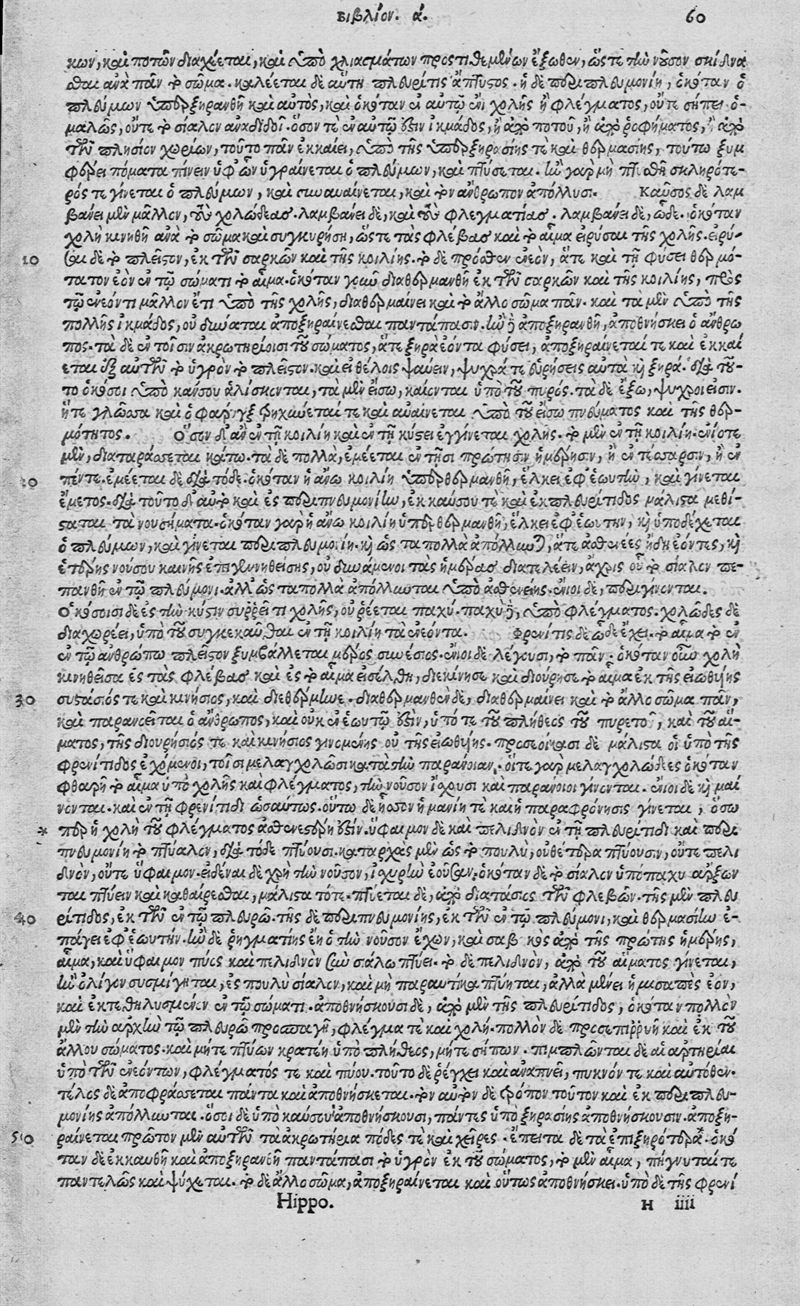 βιβλίον. ά. 60
κων, καὶ ποτῶν διαχέεται, καὶ ὑπὸ χλιασμάτων προστιθεμένων ἔξωθεν, ὥστε τὴν νοῦσον σκίδνα
σθαι ἀνὰ πᾶν τὸ σῶμα. καλέεται δὲ αὕτη πλευρῖτις ἄπτυστος. ἡ δὲ περιπλευμονίη, ὁκόταν ὁ
πλεύμων ὑπερξηρανθῇ καὶ αὐτὸς, καὶ ὁκόταν ἐν αὐτῷ ἔνι χολῆς ἢ φλέγματος, οὔτε σήπει ὁ-
μαλῶς, οὔτε τὸ σίαλον ἀναδιδοῖ. ὅσον τὲ ἐν αὐτῷ ἔστιν ἰκμάδος, ἢ ἀπὸ ποτοῦ, ἢ ἀπὸ ῥοφήματος, ἢ ἀπὸ
τῶν πλησίον χωρίων, τοῦτο πᾶν ἐκκαίει, ὑπὸ τῆς ὑπερξηρασίης τε καὶ θερμασίης, τούτῳ ξυμ
φέρει πόματα πίνειν ὑφ' ὧν ὑγραίνεται ὁ πλεύμων, καὶ πτύσεται. ἢν γὰρ μὴ πτυσθῇ σκληρότε-
ρός τε γίνεται ὁ πλεύμων, καὶ συναυαίνεται, καὶ τὸν ἄνθρωπον ἀπόλλυσι. Καῦσος δὲ λαμ
βάνει μὲν μᾶλλον, τοὺς χολώδεας. λαμβάνει δὲ, καὶ τοὺς φλεγματίας. λαμβάνει δὲ, ὧδε. ὁκόταν
χολὴ κινηθῇ ἀνὰ τὸ σῶμα καὶ συγκυρήσῃ, ὥστε τὰς φλέβας καὶ τὸ αἷμα εἰρύσαι τῆς χολῆς. εἰρύ-
10 σαι δὲ τὸ πλεῖστον, ἐκ τῶν σαρκῶν καὶ τῆς κοιλίης. τὸ δὲ πρόσθεν ἐνεὸν, ἅτε καὶ τῇ φύσει θερμό-
τατον ἐὸν ἐν τῷ σώματι τὸ αἷμα. ὁκόταν γοῦν διαθερμανθῇ ἐκ τῶν σαρκῶν καὶ τῆς κοιλίης, πρὸς
τῷ ἐνεόντι μᾶλλον ἔτι ὑπὸ τῆς χολῆς, διαθερμαίνει καὶ τὸ ἄλλο σῶμα πᾶν. καὶ τὰ μὲν ὑπὸ τῆς
πολλῆς ἰκμάδος, οὐ δύναται ἀποξηραίνεσθαι παντάπασιν. ἢν δὲ ἀποξηρανθῇ, ἀποθνήσκει ὁ ἄνθρω
πος. τὰ δὲ ἐν τοῖσιν ἀκρωτηρίοισι τοῦ σώματος, ἅτε ξηρὰ ἐόντα φύσει, ἀποξηραίνεταί τε καὶ ἐκκαί
εται ἐξ αὐτῶν τὸ ὑγρὸν τὸ πλεῖστον. καὶ εἰ θέλοις ψαύειν, ψυχρά τε εὑρήσεις αὐτὰ καὶ ξηρά. διὰ τοῦ-
το ὁκόσοι ὑπὸ καύσου ἁλίσκονται, τὰ μὲν εἴσω, καίονται ὑπὸ τοῦ πυρός. τὰ δὲ ἔξω, ψυχροὶ εἰσιν.
ἥ τε γλῶσσα καὶ ὁ φάρυγξ τρηχύνεταί τε καὶ αὐαίνεται ὑπὸ τοῦ εἴσω πνεύματος καὶ τῆς θερ-
μότητος. Ὅσον δ' ἂν ἐν τῇ κοιλίῃ καὶ ἐν τῇ κύστει ἐγγίνεται χολῆς. τὸ μὲν ἐν τῇ κοιλίῃ. ἐνίοτε
μὲν, διαταράσσεται κάτω. τὰ δὲ πολλὰ, ἐμέεται ἐν τῇσι πρώτῃσιν ἡμέρῃσιν, ἢ ἐν τέσσαρσιν, ἢ ἐν
20 πέντε. ἐμέεται δὲ διὰ τόδε. ὁκόταν ἡ ἄνω κοιλίη ὑπερθερμανθῇ, ἕλκει ἐφ' ἑωυτὴν, καὶ γίνεται
ἔμετος. διὰ τοῦτο δ' αὐτὸ καὶ ἐς περιπνευμονίην, ἐκ καύσου τε καὶ ἐκ πλευρίτιδος μάλιστα μεθί-
σταται τὰ νουσήματα. ὁκόταν γὰρ ἡ ἄνω κοιλίη ὑπερθερμανθῇ, ἕλκει ἐφ' ἑωυτὴν, καὶ ὑποδέχεται
ὁ πλεύμων, καὶ γίνεται περιπλευμονίη. καὶ ὡς τὰ πολλὰ ἀπόλλυνται, ἅτε ἀσθενέες ἤδη ἐόντες, καὶ
ἑτέρης νούσου καινῆς ἐπιγεννηθείσης, οὐ δυνάμενοι τὰς ἡμέρας διατελέειν, ἄχρις οὗ τὸ σίαλον πε-
πανθῇ ἐν τῷ πλεύμονι. ἀλλ' ὡς τὰ πολλὰ ἀπόλλυνται ὑπὸ ἀσθενείης. ἔνιοι δὲ, περιγίνονται.
Ὁκόσοισι δὲ ἐς τὴν κύστιν συρρέει τι χολῆς, οὐρέεται παχύ. παχὺ δὲ, ὑπὸ φλέγματος. χολῶδες δὲ
διαχωρέει, ὑπὸ τοῦ συγκεκαῦσθαι ἐν τῇ κοιλίῃ τὰ ἐνεόντα. Φρενῖτις δὲ ὧδε ἔχει. τὸ αἷμα τὸ ἐν
ἐν τῷ ἀνθρώπῳ πλεῖστον ξυμβάλλεται μέρος συνέσιος. ἔνιοι δὲ λέγουσι, τὸ πᾶν. ὁκόταν οὖν χολὴ
κινηθεῖσα ἐς τὰς φλέβας καὶ ἐς τὸ αἷμα εἰσέλθῃ, διεκίνησε καὶ διούρησε τὸ αἷμα ἐκ τῆς εἰωθυίης
30 συστάσιός τε καὶ κινήσιος, καὶ διεθέρμηνε. διαθερμανθὲν δὲ, διαθερμαίνει καὶ τὸ ἄλλο σῶμα πᾶν,
καὶ παρανοεῖται ὁ ἄνθρωπος, καὶ οὐκ ἐν ἑωυτῷ ἔστιν, ὑπό τε τοῦ πλήθεος τοῦ πυρετοῦ, καὶ τοῦ αἵ-
ματος, τῆς διουρήσιός τε καὶ κινήσιος γινομένης οὐ τῆς εἰωθυίης. προσεοίκασι δὲ μάλιστα οἱ ὑπὸ τῆς
φρενίτιδος ἐχόμενοι, τοῖσι μελαγχολῶσι κατὰ τὴν παράνοιαν. οἵ τε γὰρ μελαγχολώδεες ὁκόταν
φθαρῇ τὸ αἷμα ὑπὸ χολῆς καὶ φλέγματος, τὴν νοῦσον ἴσχουσι καὶ παράνοοι γίνονται. ἔνιοι δὲ καὶ μαί
νονται. καὶ ἐν τῇ φρενίτιδι ὡσαύτως. οὕτω δὲ ἧσσον ἡ μανίη τε καὶ ἡ παραφρόνησις γίνεται, ὅσῳ
* περ ἡ χολὴ τοῦ φλέγματος ἀσθενεστέρη ἔστιν. ὕφαιμον δὲ καὶ πελιδνὸν ἐν τῇ πλευρίτιδι καὶ περι
πνευμονίῃ τὸ πτύαλον, διὰ τόδε πτύουσι. καταρχὰς μὲν ὡς τὸ πουλὺ, οὐθέτερα πτύουσιν, οὔτε πελι
δνὸν, οὔτε ὕφαιμον. εἰδέναι δὲ χρὴ τὴν νοῦσον, ἰσχυρὴν ἐοῦσαν, ὁκόταν δὲ τὸ σίαλον ὑπόπαχυ ἄρξων
ται πτύειν καὶ καθαίρεσθαι, μάλιστα τότε. πτύεται δὲ, ἀπὸ διατάσιος τῶν φλεβῶν. τῆς μὲν πλευ
40 ρίτιδος, ἐκ τῶν ἐν τῷ πλευρῷ. τῆς δὲ περιπνευμονίης, ἐκ τῶν ἐν τῷ πλεύμονι, καὶ θερμασίην ἐ-
πάγει ἐφ' ἑωυτήν. ἢν δὲ ῥηγματίης ἔῃ ὁ τὴν νοῦσον ἔχων, καὶ σαβ κὸς ἀπὸ τῆς πρώτης ἡμέρης,
αἷμα, καὶ ὕφαιμον πύος καὶ πελιδνὸν σὺν σιάλῳ πτύει. τὸ δὲ πελιδνὸν, ἀπὸ τοῦ αἵματος γίνεται,
ἢν ὀλίγον συσμίγηται, ἐς πουλὺ σίαλον, καὶ μὴ παραυτίκα πτύηται, ἀλλὰ μένει ἡμισαπὲς ἐὸν,
καὶ ἐκτεθηλυσμένον ἐν τῷ σώματι. ἀποθνήσκουσι δὲ, ἀπὸ μὲν τῆς πλευρίτιδος, ὁκόταν πολλὸν
μὲν τὴν ἀρχὴν τῷ πλευρῷ προσπαγῇ, φλέγμα τε καὶ χολή. πολλὸν δὲ προσεπιρρυῇ καὶ ἐκ τοῦ
ἄλλου σώματος. καὶ μήτε πτύων κρατέῃ ὑπὸ πλήθεος, μήτε σήπων. πιμπλῶνται δὲ αἱ ἀρτηρίαι
ὑπὸ τῶν ἐνεόντων, φλέγματός τε καὶ πύου. τοῦτο δὲ ῥέγχει καὶ ἀναπνεῖ, πυκνόν τε καὶ αὐτόθεν.
τέλος δὲ ἀποφράσσεται πάντα καὶ ἀποθνήσκεται. τὸν αὐτὸν δὲ τρόπον τοῦτον καὶ ἐκ περιπλευ-
μονίης ἀπόλλυνται. ὅσοι δὲ ὑπὸ καύσου ἀποθνήσκουσι, πάντες ὑπὸ ξηρασίης ἀποθνήσκουσιν. ἀποξη-
50 ραίνεται πρῶτον μὲν αὐτῶν τὰ ἀκρωτήρια πόδες τε καὶ χεῖρες. ἔπειτα δὲ τὰ ἐπιξηρότερα. ὁκό
ταν δὲ ἐκκαυθῇ καὶ ἀποξηρανθῇ παντάπασι τὸ ὑγρὸν ἐκ τοῦ σώματος, τὸ μὲν αἷμα, πήγνυταί τε
παντελῶς καὶ ψύχεται. τὸ δὲ ἄλλο σῶμα, ἀποξηραίνεται καὶ οὕτως ἀποθνήσκει. ὑπὸ δὲ τῆς φρενί
Hippo. H iiii